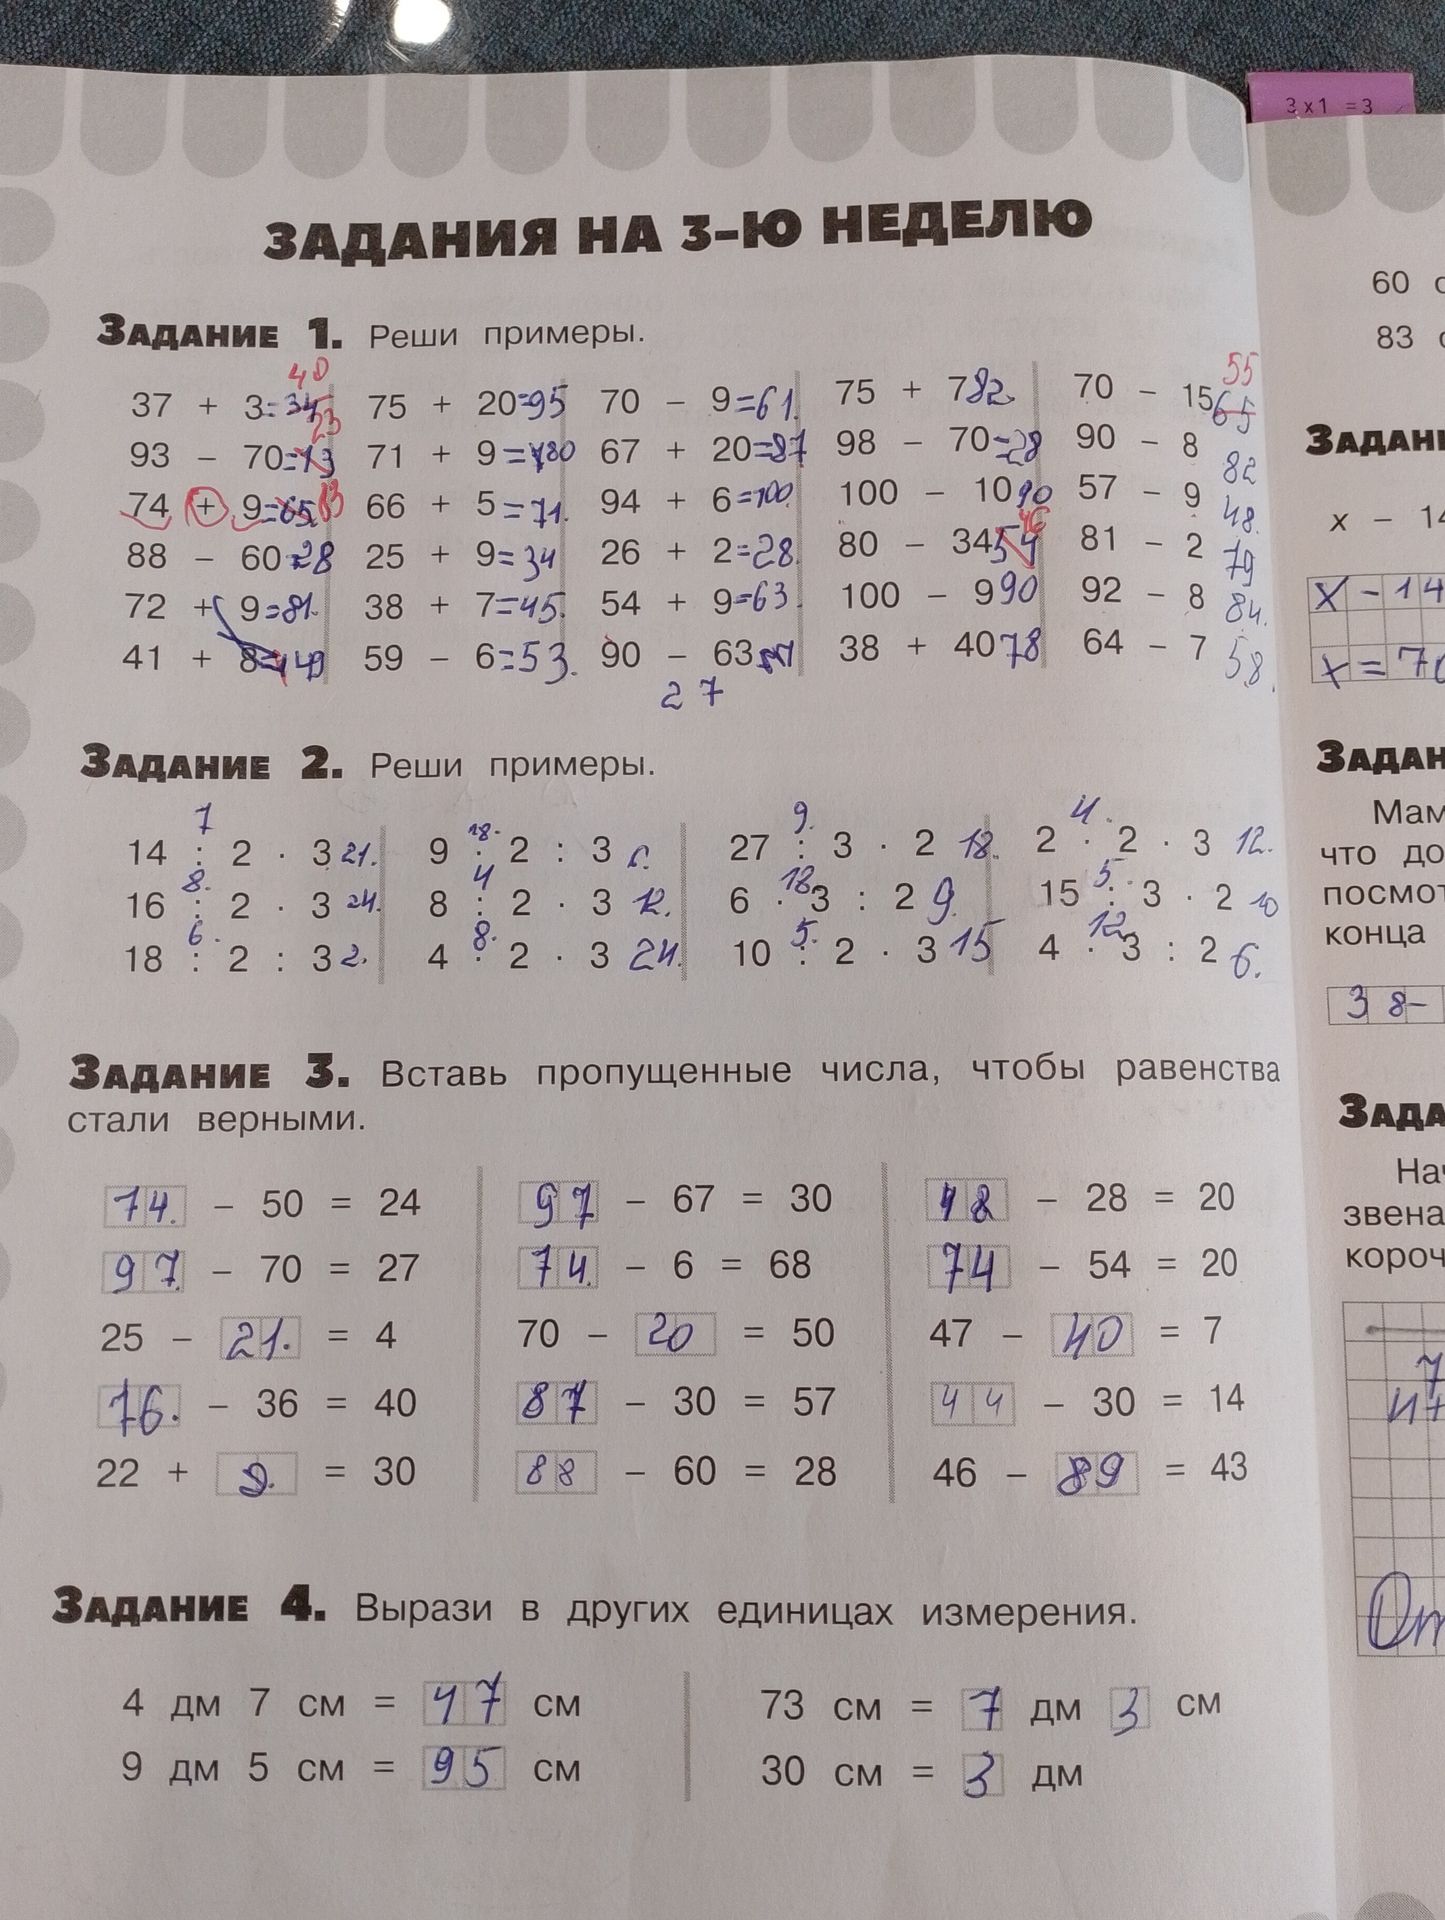 3 x 1 = 3
ЗАДАНИЯ НА 3-Ю НЕДЕЛЮ
60 с
83 с
ЗАДАНИЕ 1. Реши примеры.
40 55
37 + 3=34 75 + 20=95 70 - 9=61. 75 + 7 82. 70 - 15 65
23
93 - 70=13 71 + 9=80 67 + 20=87 98 - 70=28 90 - 8 82
74 + 9=65 83 66 + 5=71. 94 + 6=100 100 - 10 90 57 - 9 48.
46
88 - 60=28 25 + 9=34 26 + 2=28. 80 - 34 54 81 - 2 79
72 + 9=81. 38 + 7=45. 54 + 9=63. 100 - 9 90 92 - 8 84.
41 + 8=49 59 - 6=53. 90 - 63 38 + 40 78 64 - 7 58.
27
ЗАДАНИЕ 2. Реши примеры.
7 18. 9. 4.
14 : 2 · 3 21. 9 · 2 : 3 6. 27 : 3 · 2 18. 2 · 2 · 3 12.
8. 4 18 5.
16 : 2 · 3 24. 8 : 2 · 3 12. 6 · 3 : 2 9. 15 : 3 · 2 10
6. 8. 5. 12.
18 : 2 : 3 2. 4 · 2 · 3 24. 10 : 2 · 3 15 4 · 3 : 2 6.
ЗАДАНИЕ 3. Вставь пропущенные числа, чтобы равенства
стали верными.
74. - 50 = 24 97 - 67 = 30 48 - 28 = 20
97. - 70 = 27 74. - 6 = 68 74 - 54 = 20
25 - 21. = 4 70 - 20 = 50 47 - 40 = 7
76. - 36 = 40 87 - 30 = 57 44 - 30 = 14
22 + 9. = 30 88 - 60 = 28 46 - 89 = 43
ЗАДАНИЕ 4. Вырази в других единицах измерения.
4 дм 7 см = 47 см 73 см = 7 дм 3 см
9 дм 5 см = 95 см 30 см = 3 дм
ЗАДАНИ
x - 14
x - 14
x = 70
ЗАДАН
Мам
что до
посмот
конца
38-
ЗАДА
Нач
звена
короч
7
От